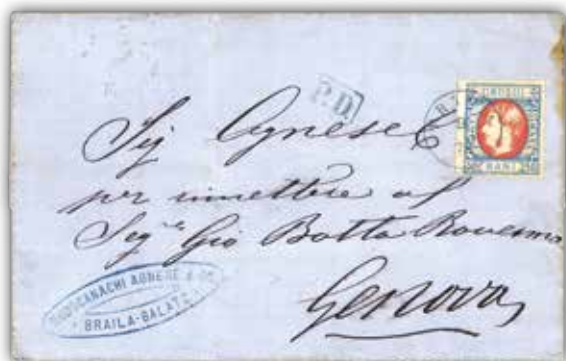 P.D.
BANI
Sig Agnese
per rimettere al
Sig.re Gio Batta
Genova
AGNESE & CO
BRAILA-GALATZ